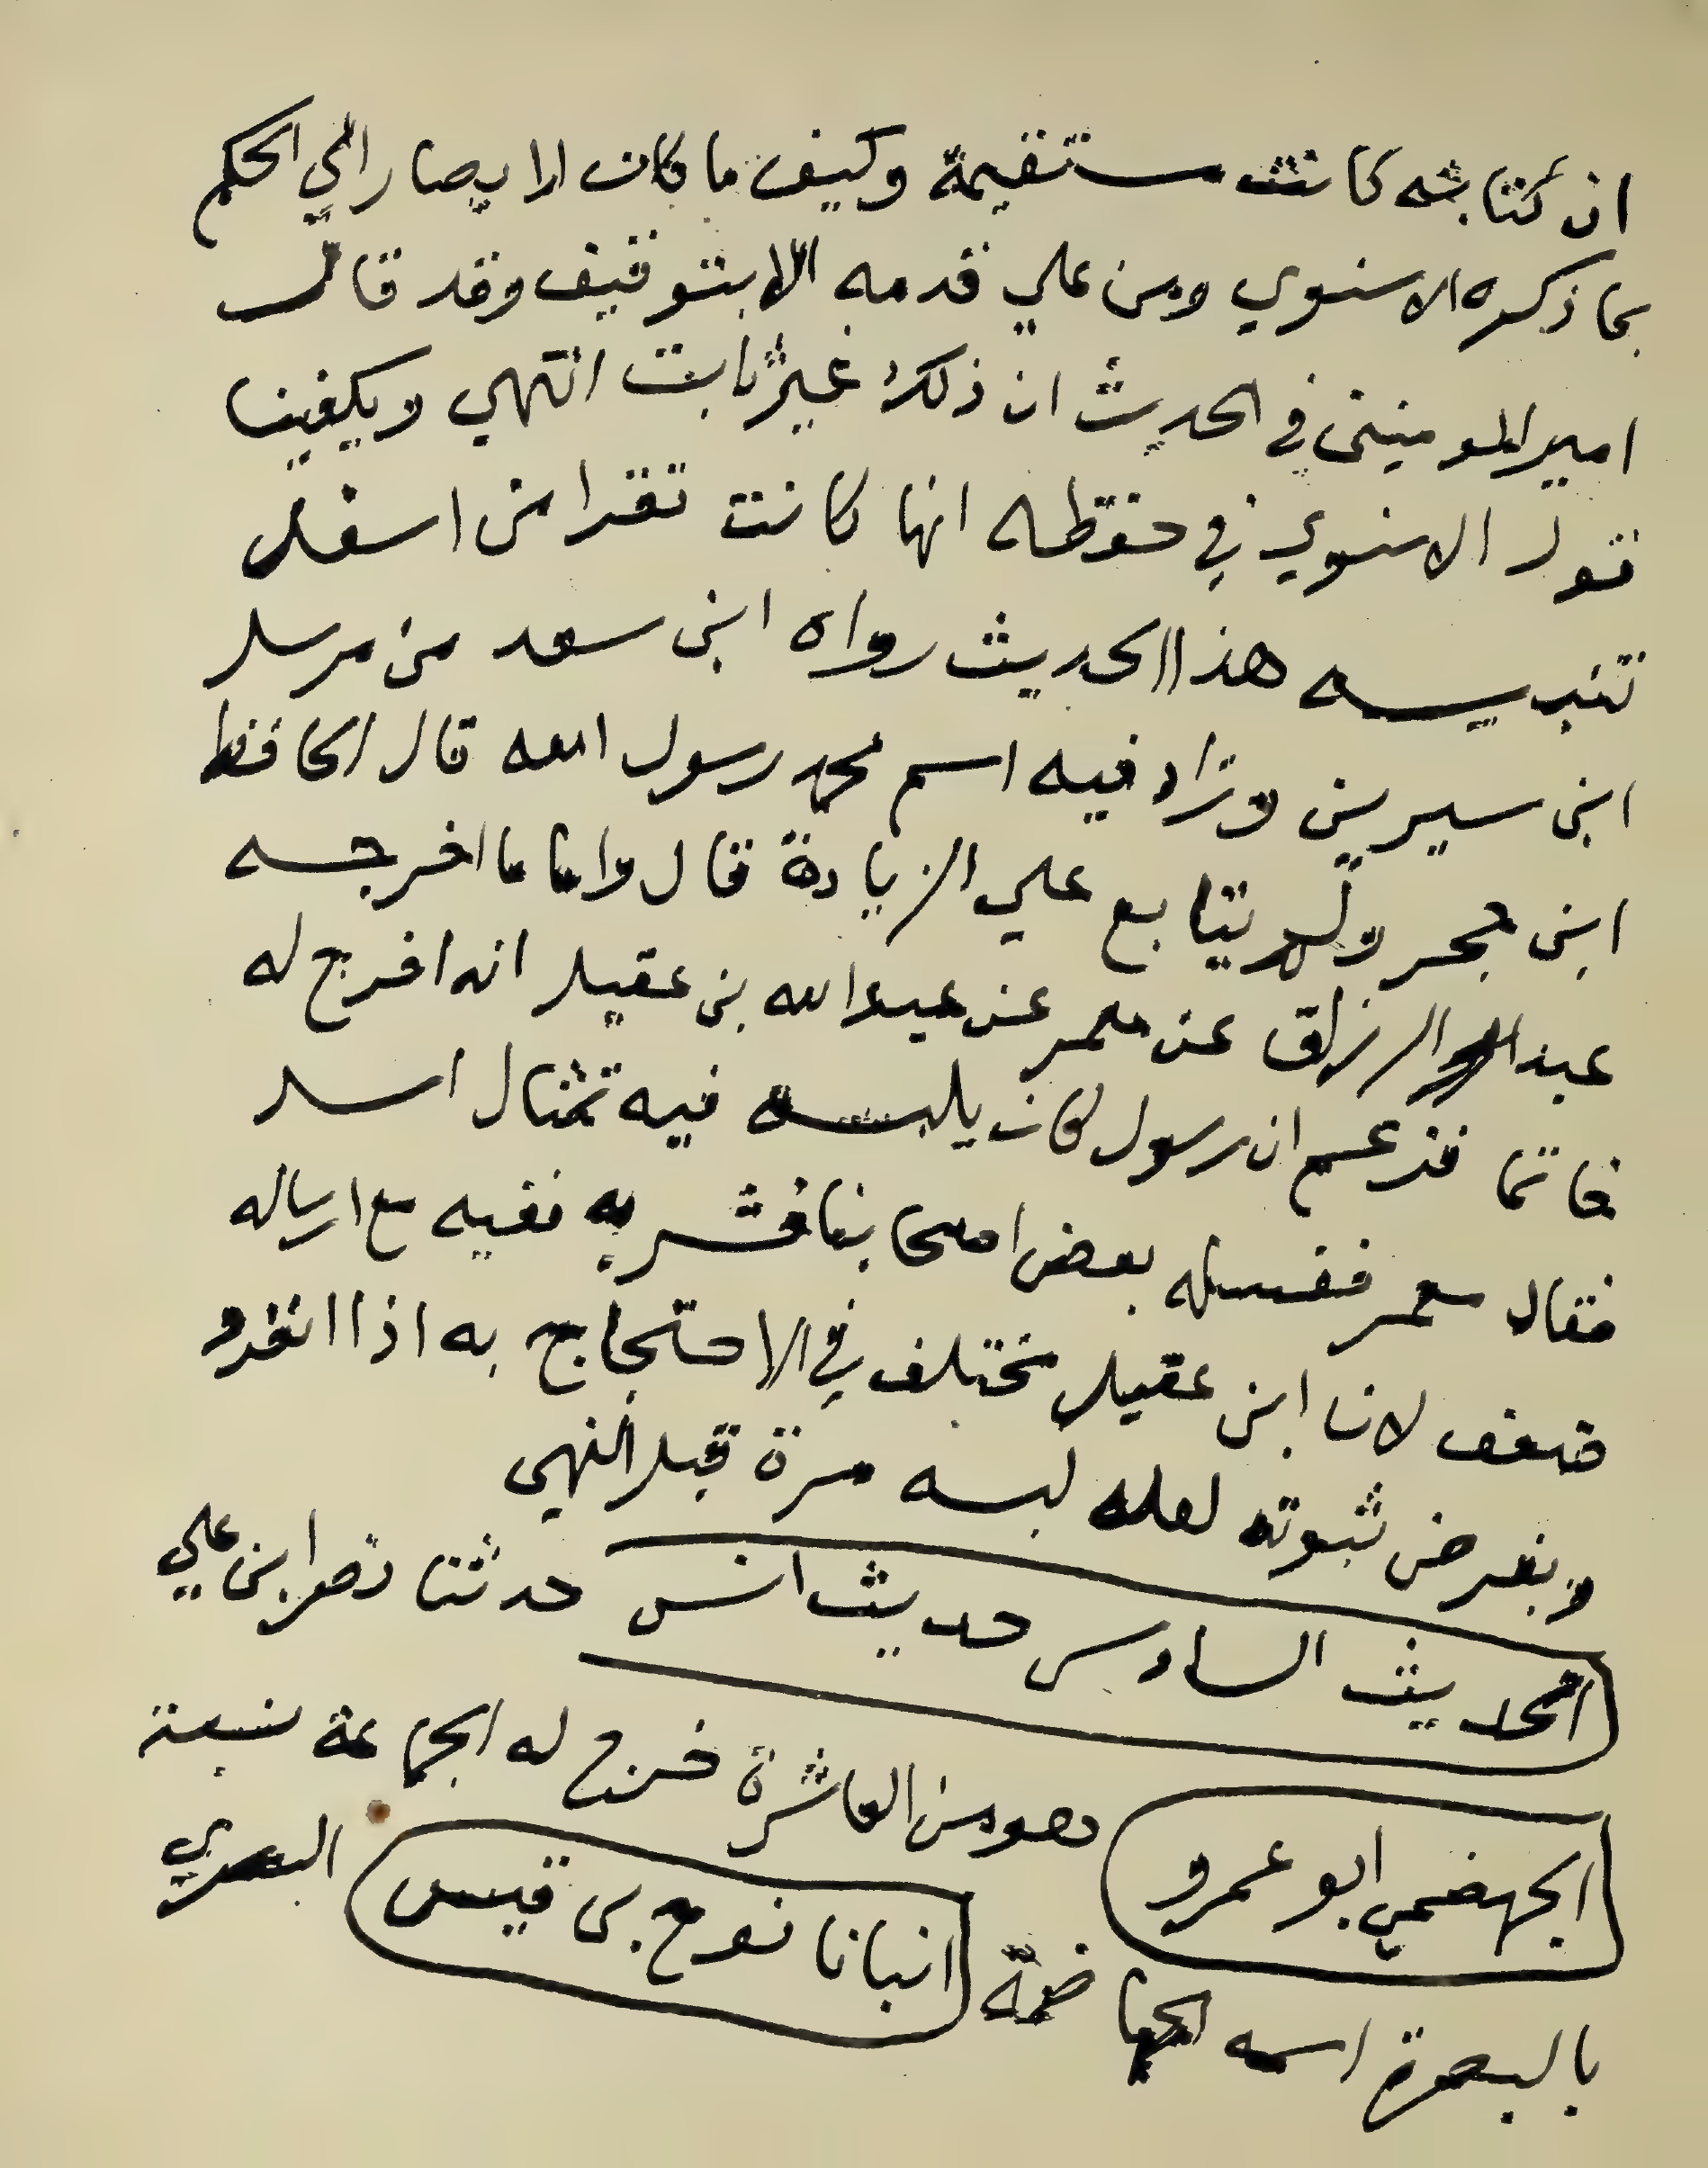 ان كتابته كانت مستقيمة وكيف ما كان لا يصار الي الحكم
بما ذكره الاسنوي ومن علي قدمه الا بتوقيف وقد قال
امير المومنين في الحديث ان ذلك غير ثابت انتهي ويكفينا
قول الاسنوي في حفظه انها كانت تقرا من اسفل
تنبيه هذا الحديث رواه ابن سعد من مرسل
ابن سيرين وزاد فيه اسم محمد رسول الله قال الحافظ
ابن حجر ولم يتابع علي الزيادة قال واما ما اخرجه
عبد الرزاق عن معمر عن عبد الله بن عقيل انه اخرج له
خاتما فزعم ان رسول كان يلبسه فيه تمثال اسد
فقال معمر فغسله بعض اصحابنا فشربه ففيه مع ارساله
ضعف لان ابن عقيل مختلف في الاحتجاج به اذا انفرد
وبفرض ثبوته لعله لبسه مرة قبل النهي
الحديث السادس حديث انس حدثنا نصر ابن علي
الجهضمي ابو عمرو وهو من العاشرة خرج له الجماعة نسبة
بالبصرة اسمه الجهاضمة انبانا نوح بن قيس البصري